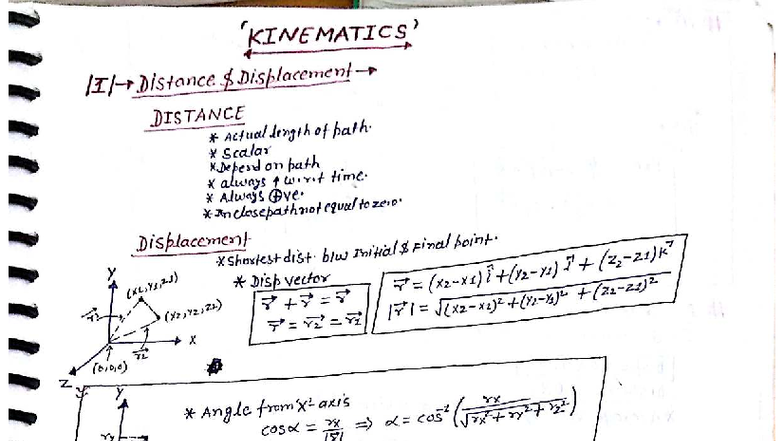 'KINEMATICS'
|I|→Distance & Displacement→
DISTANCE
* Actual length of path.
* Scalar
* Depend on path
* always ↑ w.r.t time.
* Always ⊕ve.
* In close path not equal to zero.
Displacement
* Shortest dist. b/w Initial & Final point.
* Disp vector
r⃗ + r⃗ = r⃗
r⃗ = r⃗2 = r⃗1
r⃗ = (x2-x1) î + (y2-y1) j⃗ + (z2-z1) k⃗
|r⃗| = √(x2-x1)² + (y2-y1)² + (z2-z1)²
Y
(x1,y1,z1)
r⃗1
(x2,y2,z2)
X
r⃗2
(0,0,0)
Z
y
Y
rx
* Angle from X² axis
cosα = rx/|r⃗| ⇒ α = cos⁻¹ (rx/√rx²+ry²+rz²)